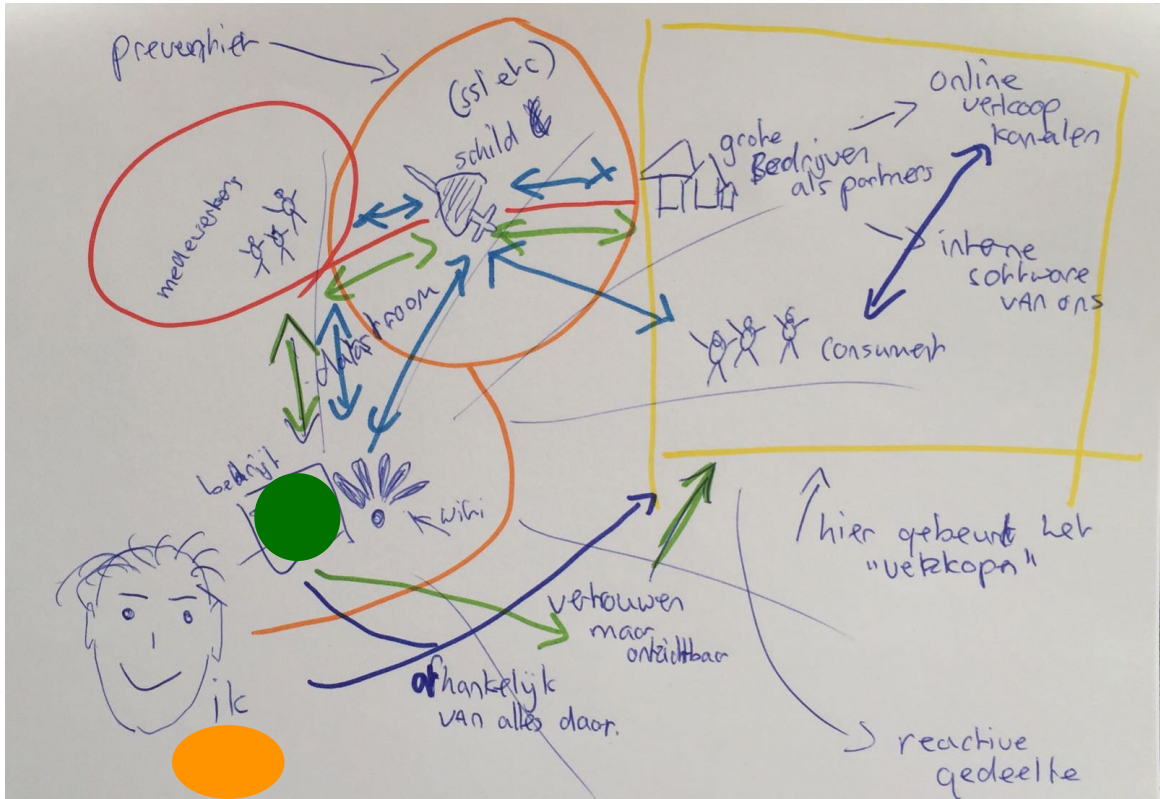 preventief
(ssl etc)
schild
medewerkers
datastroom
grote
Bedrijven
als partners
online
verkoop
kanalen
interne
software
VAN ons
consument
bedrijf
wifi
ik
vertrouwen
maar
onzichtbaar
afhankelijk
VAN alles daar.
hier gebeurt het
"verkopn"
reactive
gedeelte